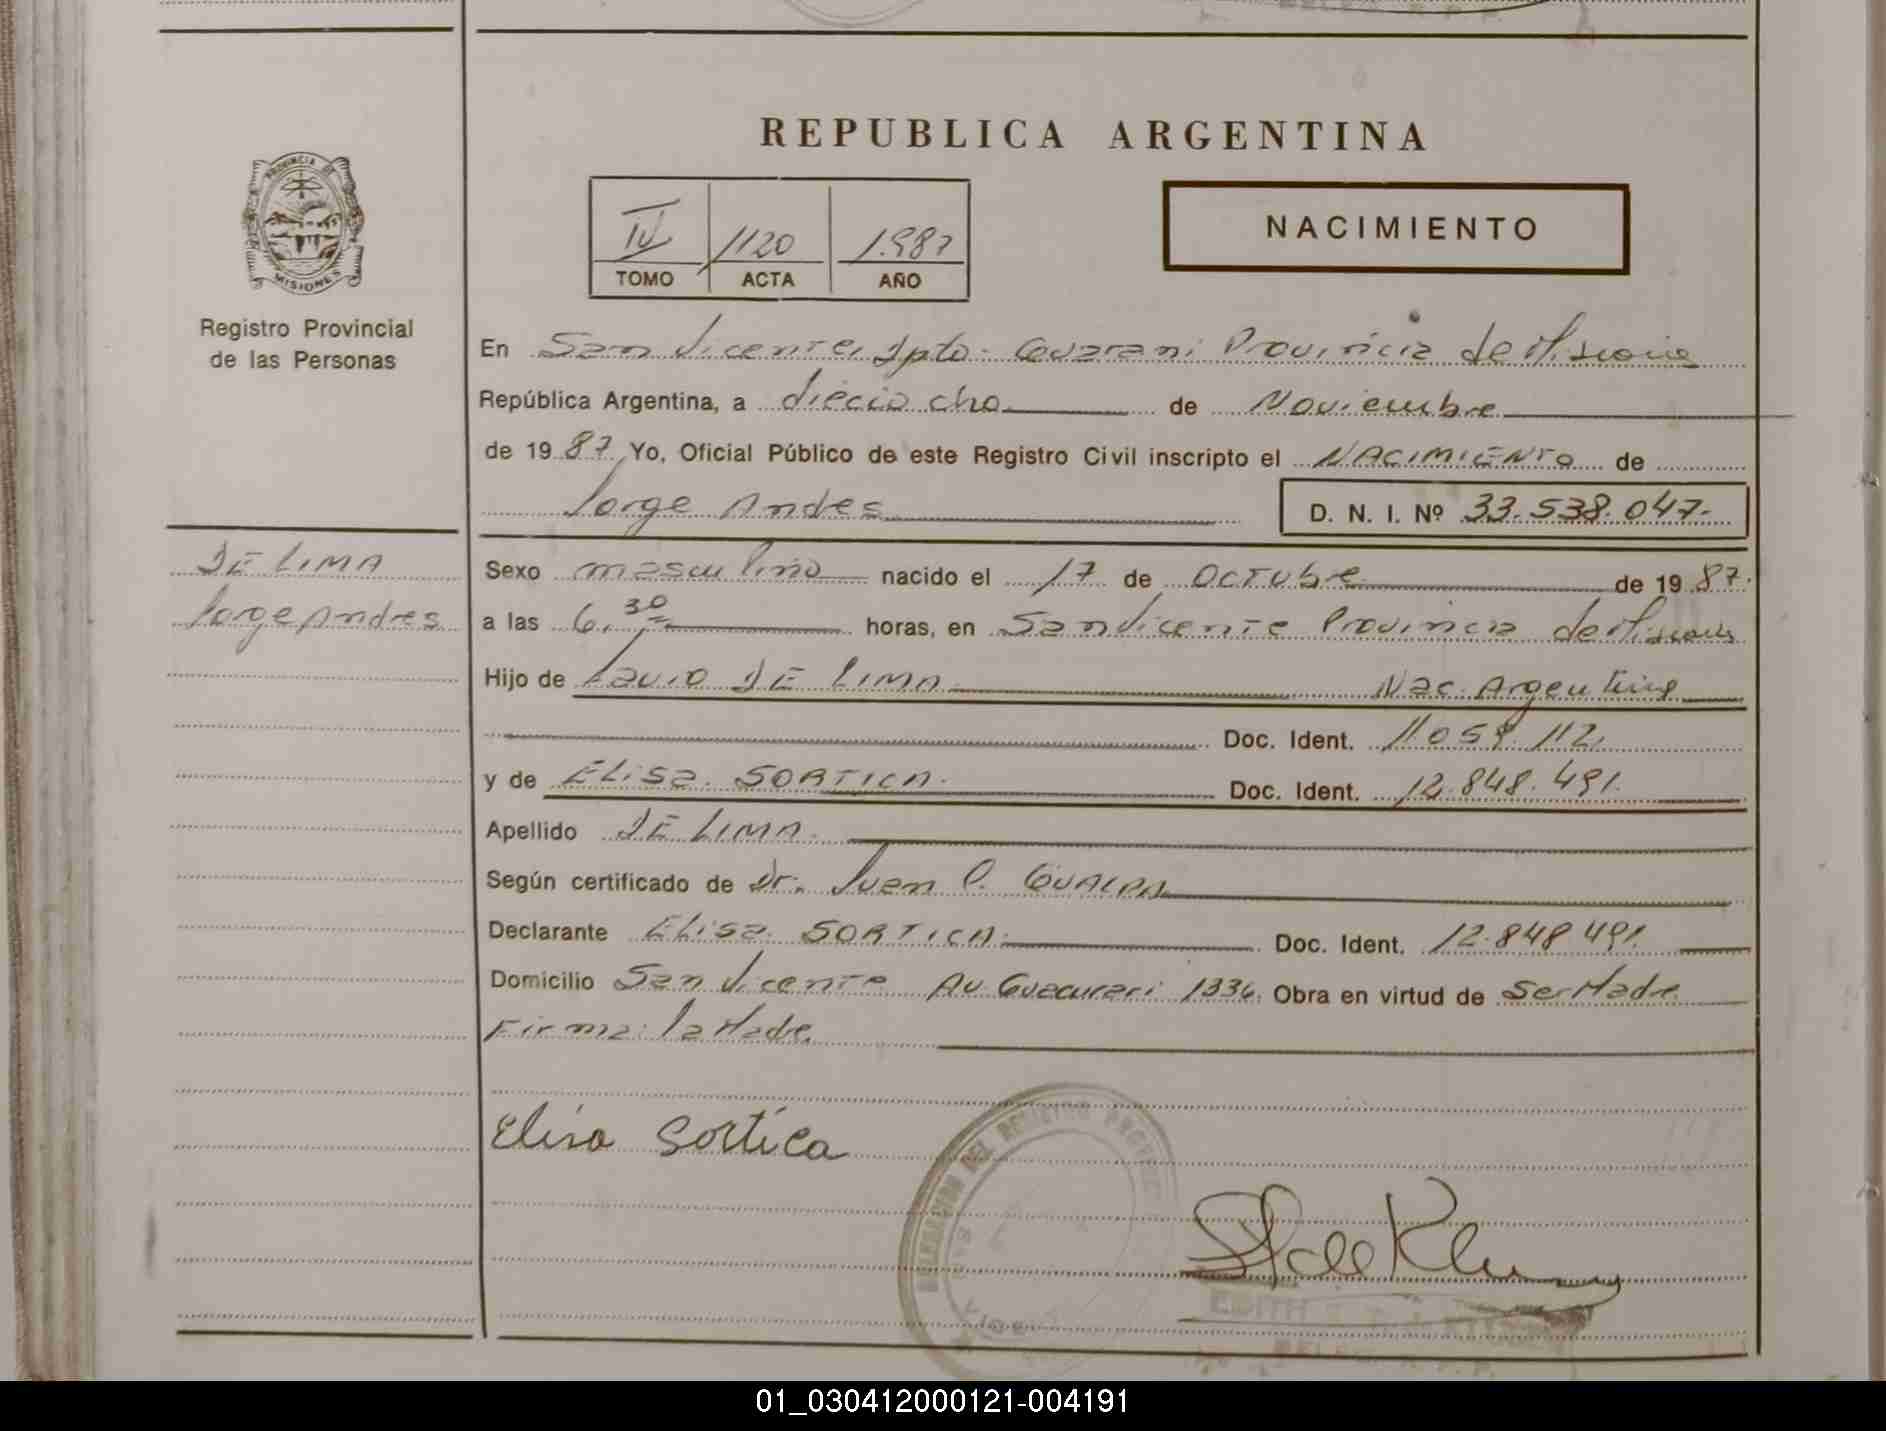 REPUBLICA ARGENTINA
PROVINCIA DE
MISIONES
Registro Provincial
de las Personas
IV 1120 1.987
TOMO ACTA AÑO
NACIMIENTO
En San Vicente, Dpto. Guarani Provincia de Misiones
República Argentina, a dieciocho de Noviembre
de 1987 Yo, Oficial Público de este Registro Civil inscripto el NACIMIENTO de
Jorge Andes D. N. I. Nº 33.538.047.-
DE LIMA
Jorge Andres
Sexo masculino nacido el 17 de Octubre de 1987.
a las 6,30 horas, en San Vicente Provincia de Misiones
Hijo de Lauro DE LIMA Nac. Argentina
Doc. Ident. 11.059.112,
y de Elisa SORTICA. Doc. Ident. 12.848.491.
Apellido DE LIMA.
Según certificado de Dr. Juan O. GUALPA
Declarante Elisa SORTICA. Doc. Ident. 12.848.491.
Domicilio San Vicente Av. Guacurari 1336. Obra en virtud de Ser Madre
Firma: la Madre.
Elisa Sortica
DELEGACION DEL REGISTRO
EDITH
01_030412000121-004191